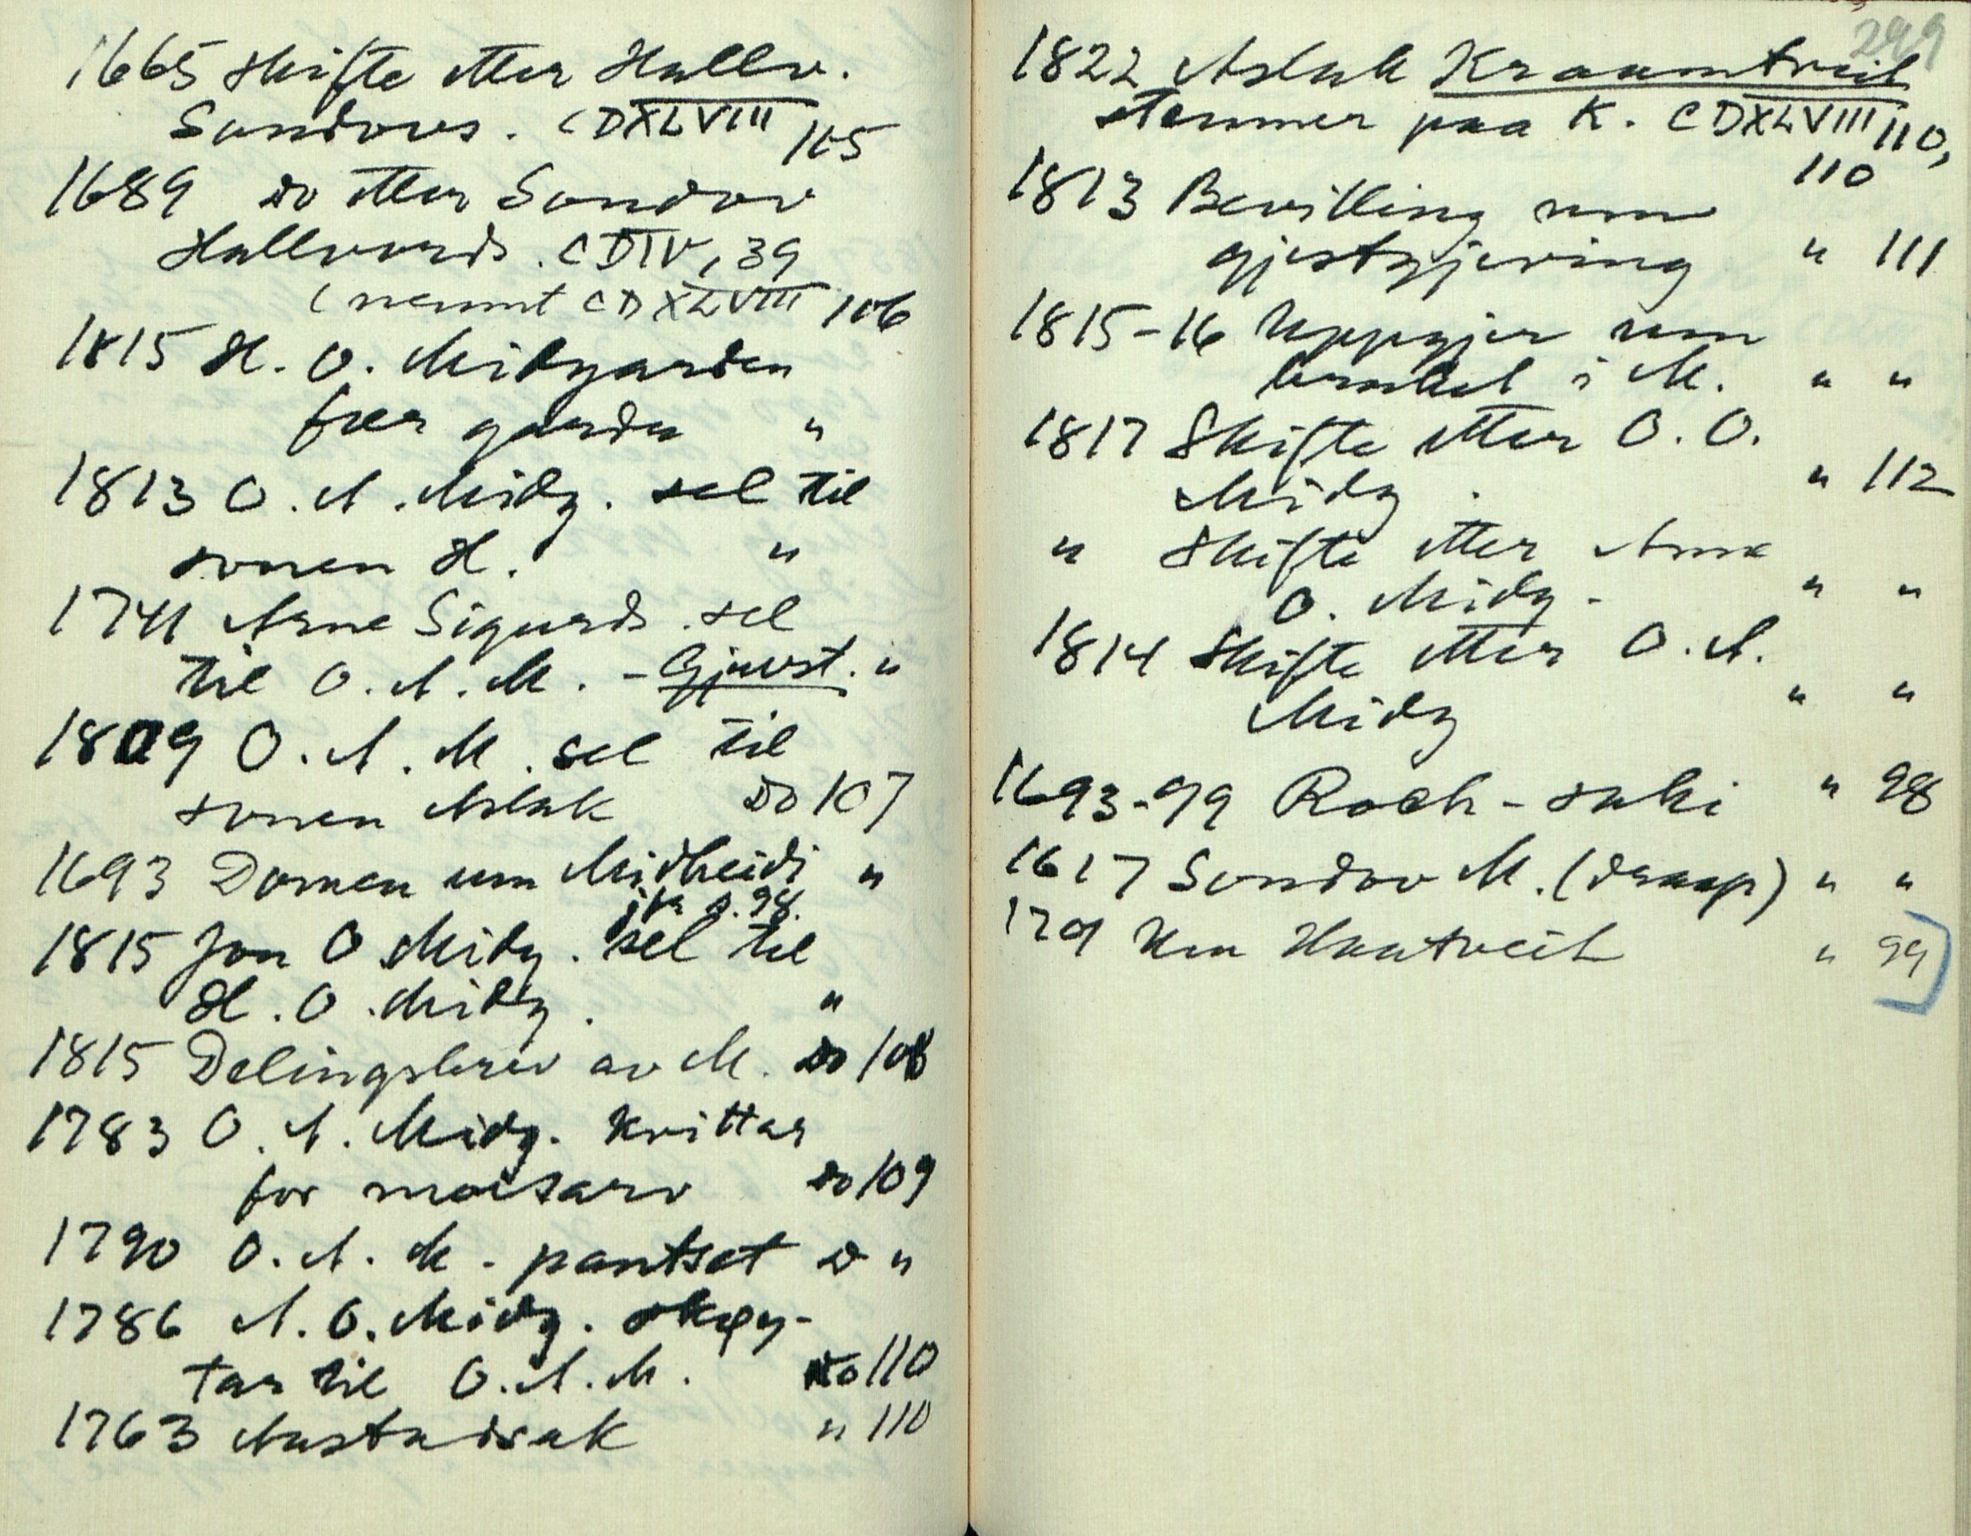 1665 Skifte etter Hallv.
Sondovs. CDXLVIII 105
1689 do etter Sondov
Hallvords. CDIV, 39
(nemnt CDXLVIII 106
1815 H. O. Midgarden
fær garden "
1813 O. A. Midg. sel til
sonen H. "
1741 Arne Sigurds. sel
til O. A. M. - Gjuvst. "
1809 O. A. M. sel til
sonen Aslak do 107
1693 Domen um Midheidi "
jfr s. 98.
1815 Jon O Midg. sel til
H. O. Midg. "
1815 Delingsbrev av M. do 108
1783 O. A. Midg. kvittar
for morsarv do 109
1790 O. A. M. pantset do "
1786 A. O. Midg. skøy-
tar til O. A. M. do 110
1763 Austadsak " 110
299
1822 Aslak Kraamtveit
stemner paa K. CDXLVIII 110,
110
1813 Bevilling um
gjestgjering " 111
1815-16 Uppgjer um
brukel i M. " "
1817 Skifte etter O. O.
Midg. " 112
" Skifte etter Arne
O. Midg. " "
1814 Skifte etter O. A.
Midg " "
1693-99 Roch-saki " 98
1617 Sondov M. (draap) " "
1701 Um Haatveit " 99